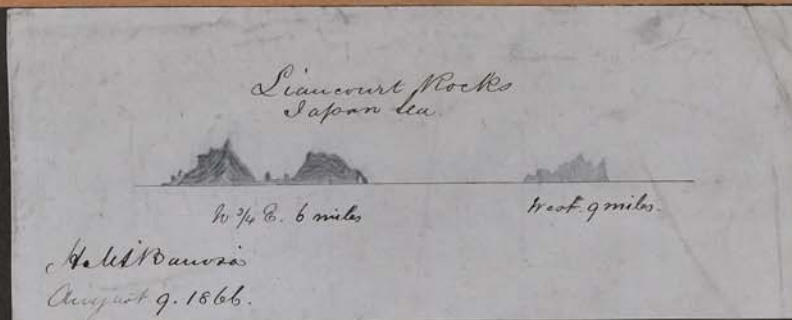 Liancourt Rocks
Japan Sea.
N ¾ E. 6 miles West. 9 miles.
HMS Barrosa
August 9. 1866.